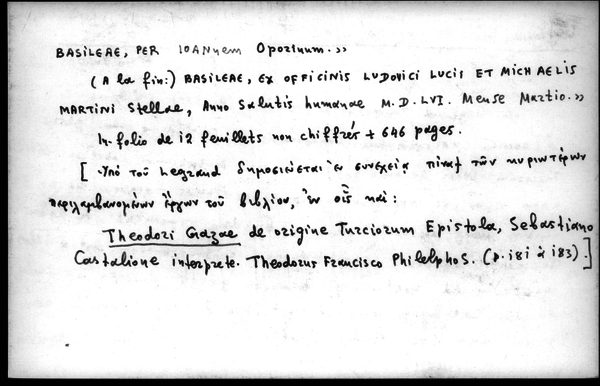 BASILEAE, PER IOANNEM Oporinum.»
(A la fin:) BASILEAE, EX OFFICINIS LUDOVICI LUCII ET MICHAELIS
MARTINI Stellae, Anno Salutis humanae M.D.LVI. Mense Martio.»
In-folio de 12 feuillets non chiffrés + 646 pages.
[Ὑπό τοῦ Legrand δημοσιεύεται ἐν συνεχείᾳ πίναξ τῶν κυριωτέρων
περιλαμβανομένων ἔργων τοῦ βιβλίου, ἐν οἷς καί:
Theodori Gazae de origine Turcicorum Epistola, Sebastiano
Castalione interprete. Theodorus Francisco Philelpho S. (p. 181 à 183).]